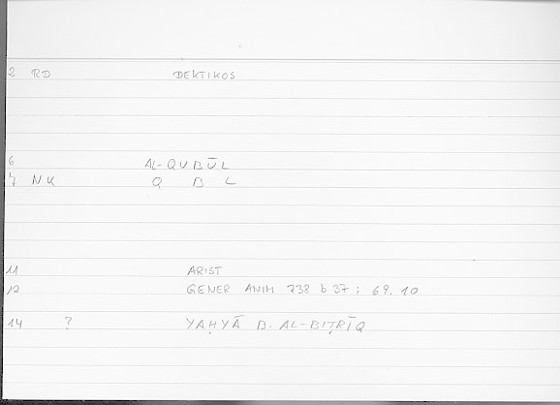 2 RD DEKTIKOS
6 AL-QUBŪL
7 NK Q B L
11 ARIST
12 GENER ANIM 738 b 37 ; 69.10
14 ? YAḤYĀ B. AL-BIṬRĪQ